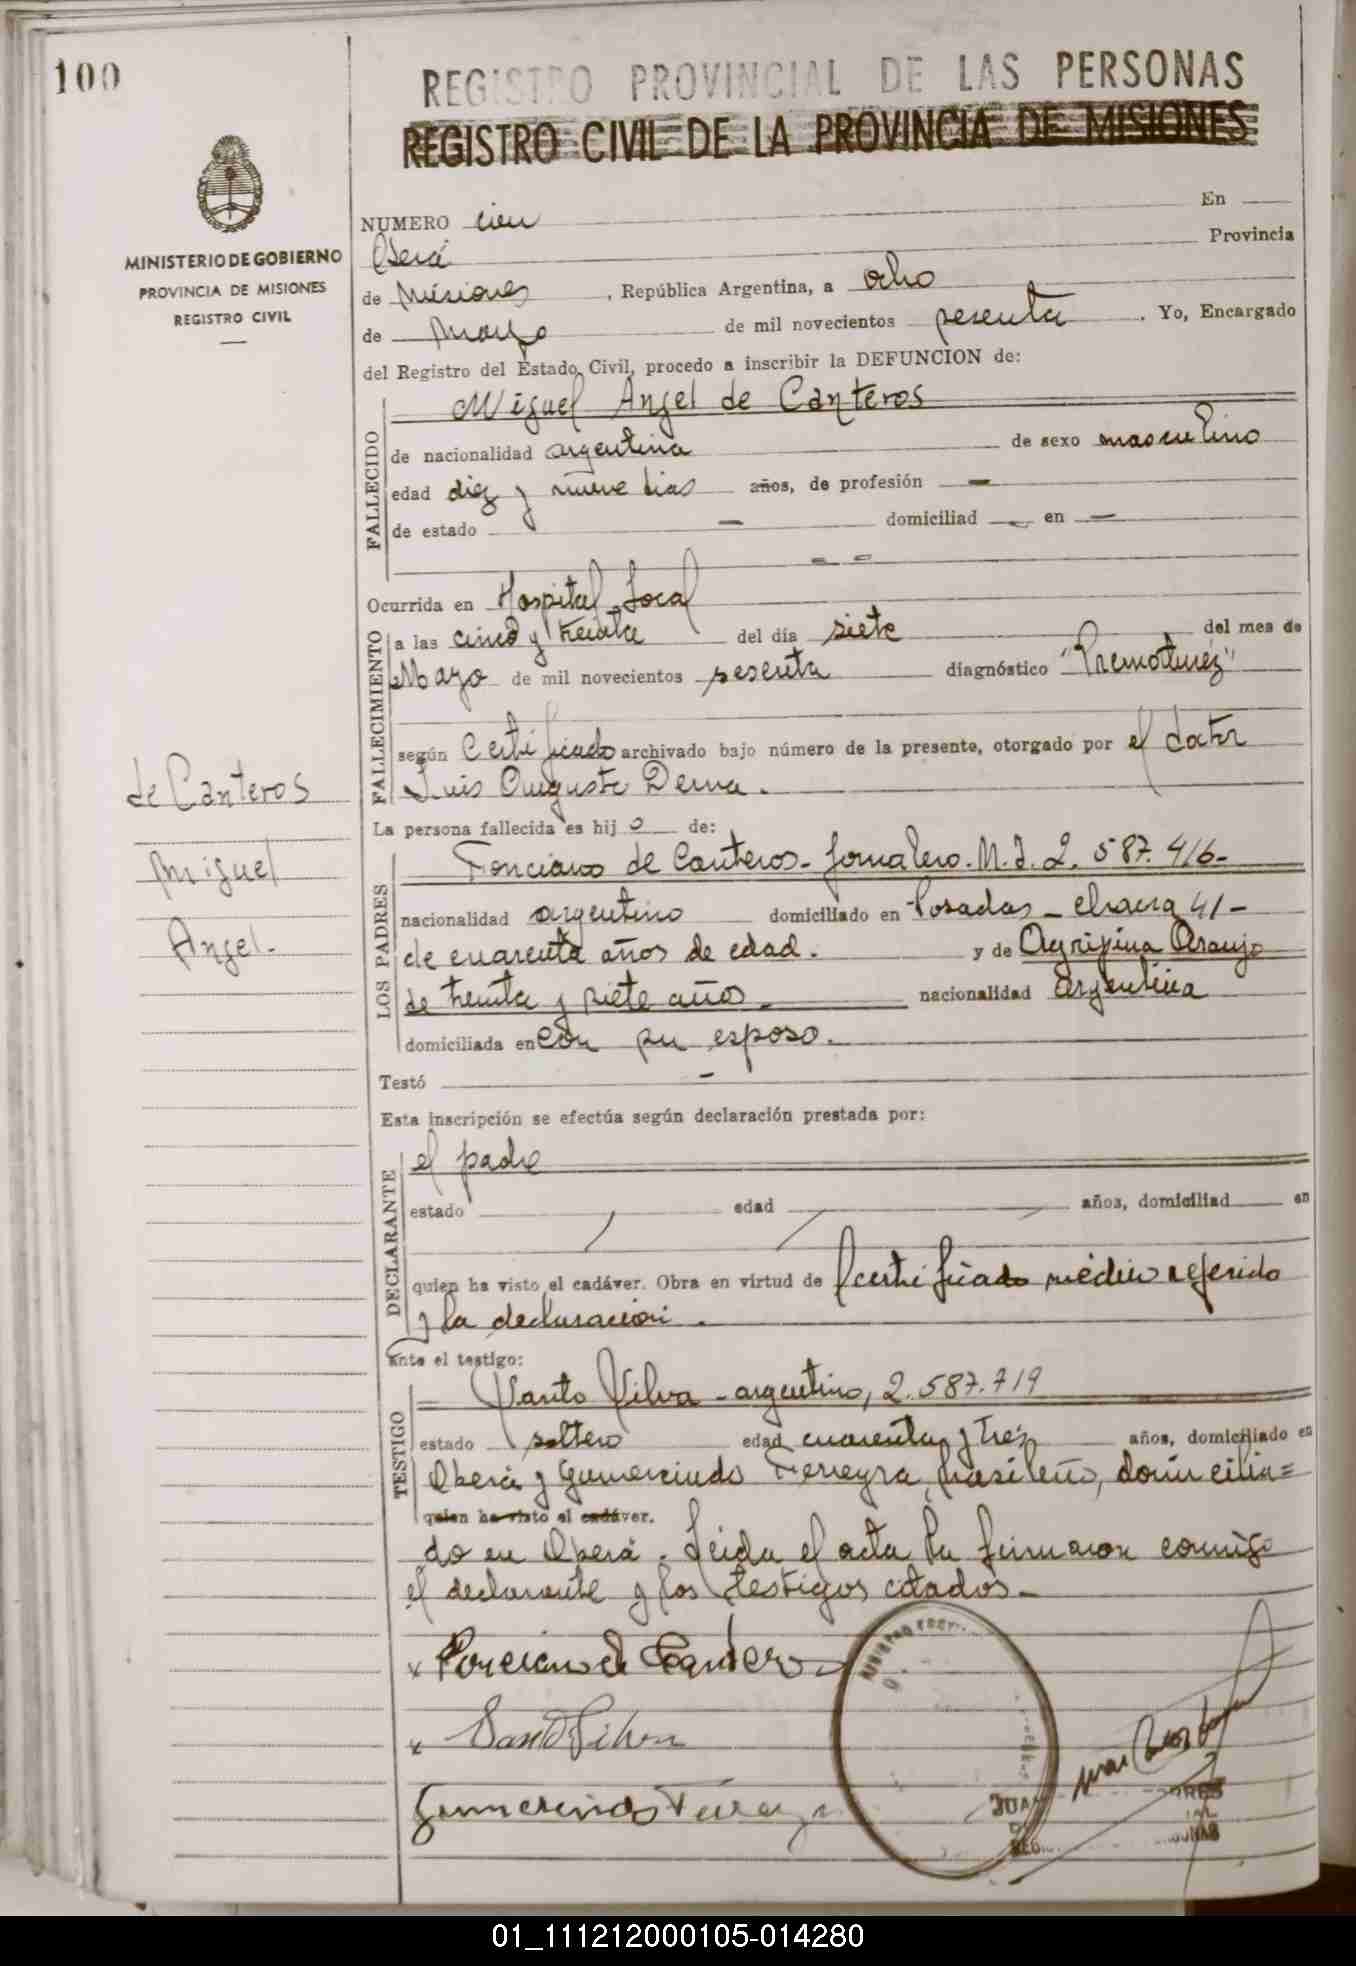 100
REGISTRO PROVINCIAL DE LAS PERSONAS
REGISTRO CIVIL DE LA PROVINCIA DE MISIONES
MINISTERIO DE GOBIERNO
PROVINCIA DE MISIONES
REGISTRO CIVIL
NUMERO cien En
Oberá Provincia
de Misiones, República Argentina, a ocho
de Mayo de mil novecientos sesenta. Yo, Encargado
del Registro del Estado Civil, procedo a inscribir la DEFUNCION de:
FALLECIDO
Miguel Angel de Canteros
de nacionalidad argentina de sexo masculino
edad diez y nueve dias años, de profesión —
de estado — domiciliad — en —
— —
Ocurrida en Hospital Local
FALLECIMIENTO
a las cinco y treinta del día siete del mes de
Mayo de mil novecientos sesenta diagnóstico "Prematurez"
según Certificado archivado bajo número de la presente, otorgado por el doctor
Luis Augusto Derna.
de Canteros
Miguel
Angel.-
La persona fallecida es hijo de:
LOS PADRES
Ponciano de Canteros - Jornalero. M.I. 2.587.416-
nacionalidad argentino domiciliado en Posadas - chacra 41-
de cuarenta años de edad. y de Agripina Araujo
de treinta y siete años. nacionalidad argentina
domiciliada en con su esposo.
Testó —
Esta inscripción se efectúa según declaración prestada por:
DECLARANTE
el padre
estado / edad / años, domiciliad en
quien ha visto el cadáver. Obra en virtud de certificado médico referido
y la declaración.
Ante el testigo:
TESTIGO
Santo Silva - argentino, 2.587.719
estado soltero edad cuarenta y tres años, domiciliado en
Oberá y Gumercindo Ferreyra, brasileño, domicilia=
quien ha visto el cadáver.
do en Oberá. Leida el acta la firmaron conmigo
el declarante y los testigos citados.-
x Ponciano de Cantero
x Santo Silva
Gumercindo
JUAN
01_111212000105-014280